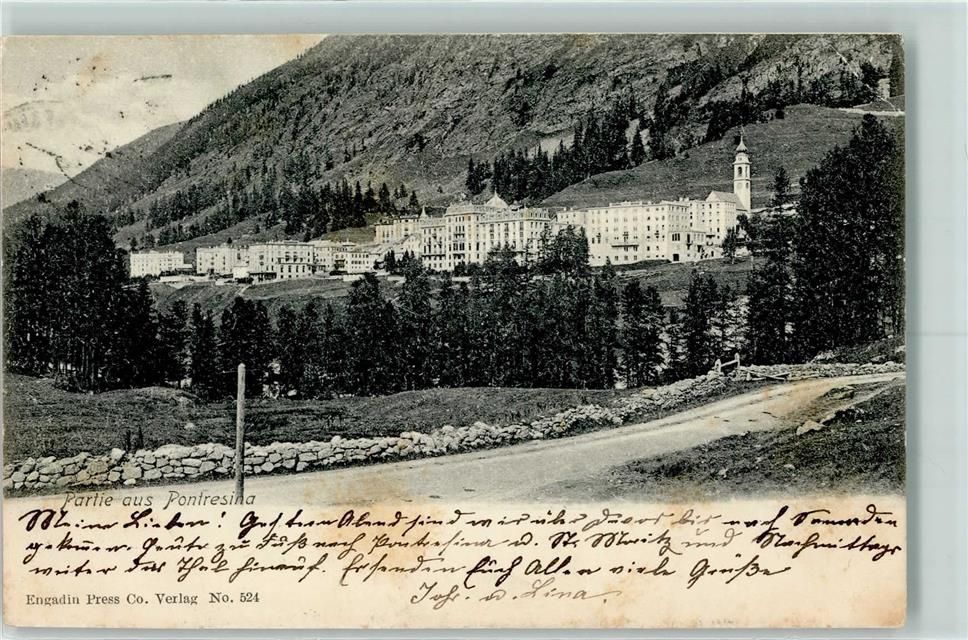 Partie aus Pontresina
Meine Lieben! Gestern Abend sind wir über Davos bis nach Samaden
gekommen. Heute zu Fuß nach Pontresina u. St. Moritz und Nachmittags
weiter das Thal hinauf. Ersenden Euch Allen viele Grüße
Joh. u. Lina.
Engadin Press Co. Verlag No. 524